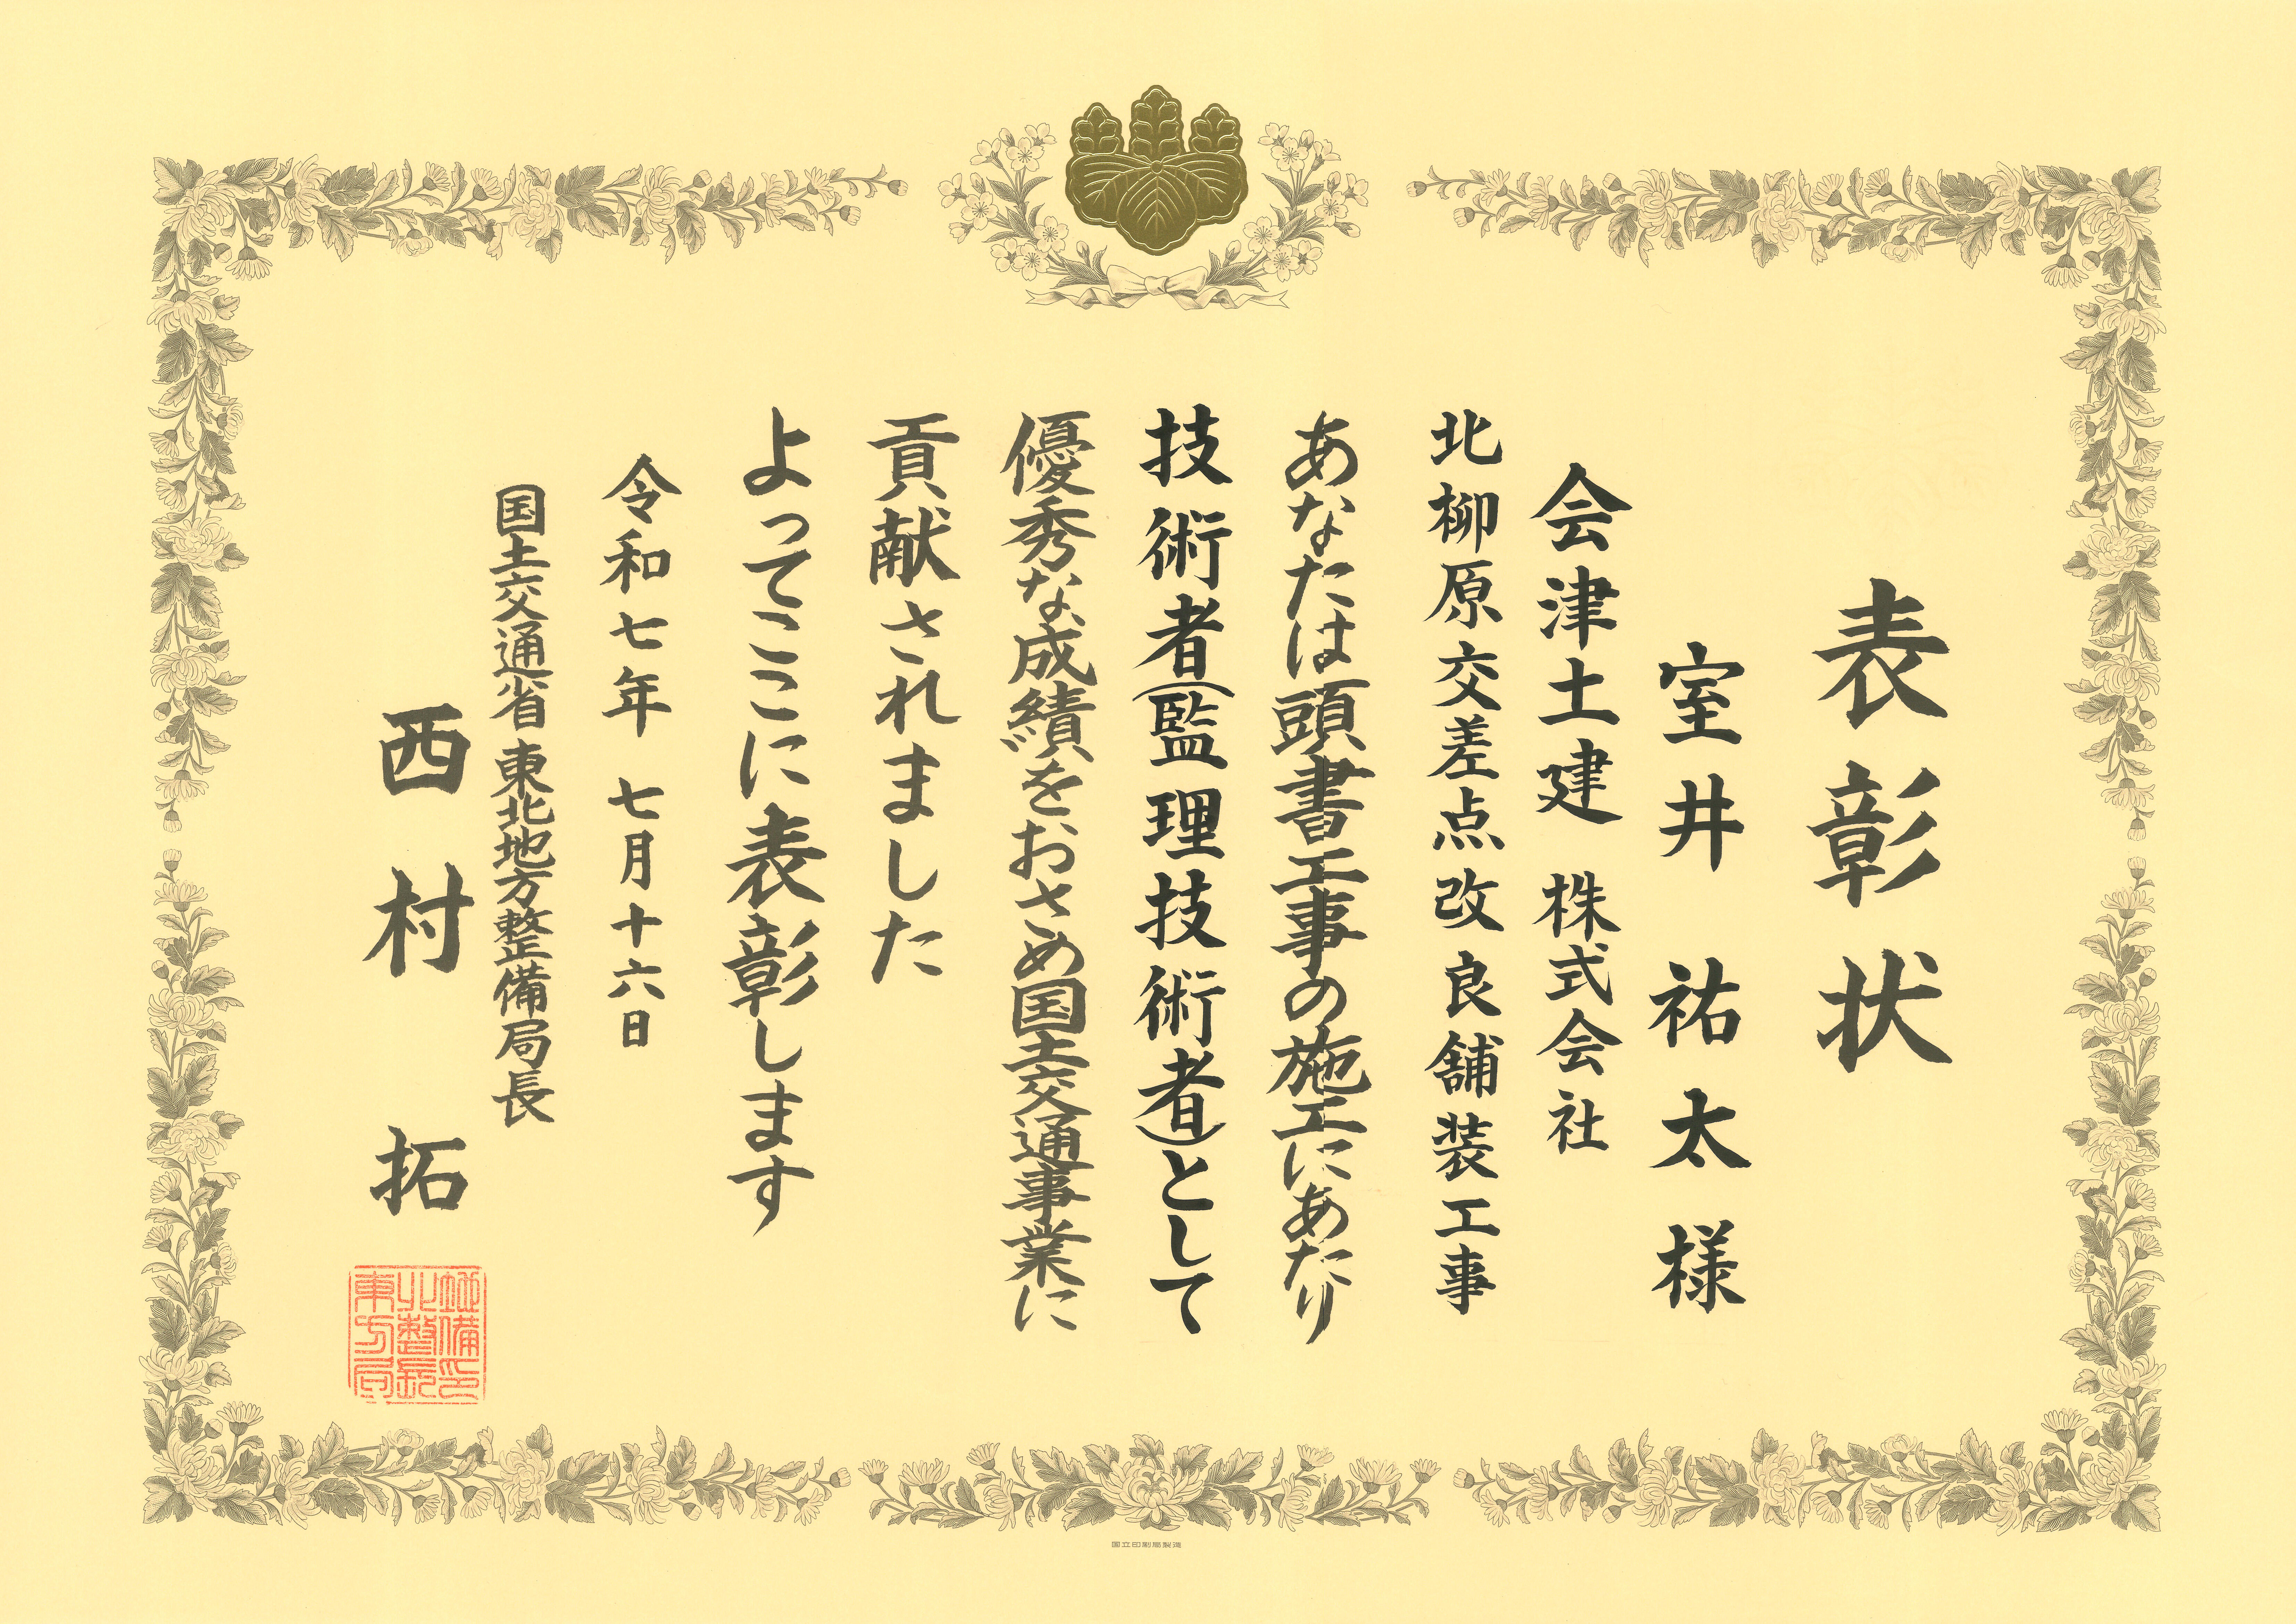 表彰状
室井 祐太 様
会津土建 株式会社
北柳原交差点改良舗装工事
あなたは頭書工事の施工にあたり
技術者(監理技術者)として
優秀な成績をおさめ国土交通事業に
貢献されました
よってここに表彰します
令和七年 七月十六日
国土交通省 東北地方整備局長
西村 拓
国立印刷局製造